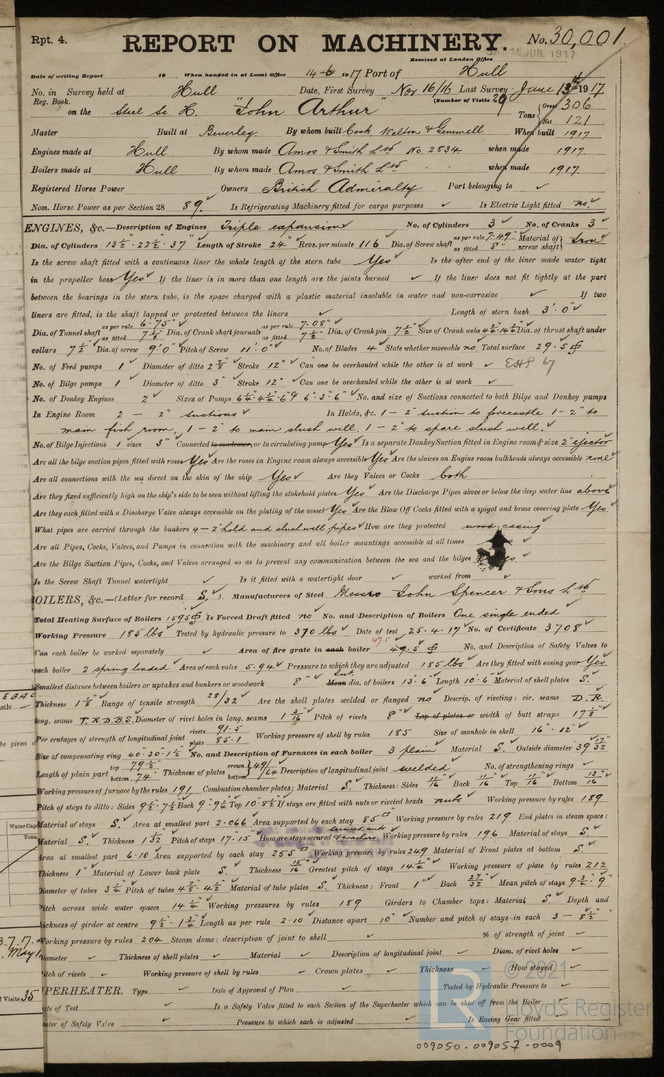 Rpt. 4. REPORT ON MACHINERY. No. 30,001.
Received at London Office 16 JUN. 1917
Date of writing Report 19 When handed in at Local Office 14-6-1917 Port of Hull
No. in Survey held at Hull Date, First Survey Nov 16/16 Last Survey June 13th 1917
Reg. Book. (Number of Visits 29
on the Steel Sc. K. "John Arthur" Tons Gross 306 Net 121
Master Built at Beverley. By whom built Cook Welton & Gemmell When built 1917
Engines made at Hull By whom made Amos & Smith Ltd No. 2834 when made 1917.
Boilers made at Hull By whom made Amos & Smith Ltd. when made 1917.
Registered Horse Power Owners British Admiralty Port belonging to
Nom. Horse Power as per Section 28 89. Is Refrigerating Machinery fitted for cargo purposes Is Electric Light fitted no.
ENGINES, &c.—Description of Engines Triple expansion No. of Cylinders 3 No. of Cranks 3
Dia. of Cylinders 13½-22½-37" Length of Stroke 24" Revs. per minute 116 Dia. of Screw shaft as per rule 7.49" as fitted 8" Material of screw shaft Iron
Is the screw shaft fitted with a continuous liner the whole length of the stern tube Yes Is the after end of the liner made water tight
in the propeller boss Yes If the liner is in more than one length are the joints burned If the liner does not fit tightly at the part
between the bearings in the stern tube, is the space charged with a plastic material insoluble in water and non-corrosive If two
liners are fitted, is the shaft lapped or protected between the liners Length of stern bush 3'. 0"
Dia. of Tunnel shaft as per rule 6.75" as fitted 7½" Dia. of Crank shaft journals as per rule 7.08" as fitted 7½" Dia. of Crank pin 7½" Size of Crank webs Dia. of thrust shaft under
collars 7½" Dia. of screw 9'.0" Pitch of Screw 11'.0" No. of Blades 4 State whether moveable no. Total surface 29.5
No. of Feed pumps 1 Diameter of ditto Stroke 12" Can one be overhauled while the other is at work EHP 67
No. of Bilge pumps 1 Diameter of ditto 3" Stroke 12" Can one be overhauled while the other is at work
No. of Donkey Engines 2 Sizes of Pumps No. and size of Suctions connected to both Bilge and Donkey pumps
In Engine Room 2 — 2" suctions In Holds, &c. 1 - 2" suction to forecastle 1 - 2" to
main fish room, 1 - 2" to main slush well. 1 - 2" to spare slush well.
No. of Bilge Injections 1 sizes 3" Connected to condenser, or to circulating pump Yes Is a separate Donkey Suction fitted in Engine room & size 2" ejector
Are all the bilge suction pipes fitted with roses Yes Are the roses in Engine room always accessible Yes Are the sluices on Engine room bulkheads always accessible none
Are all connections with the sea direct on the skin of the ship Yes Are they Valves or Cocks both
Are they fixed sufficiently high on the ship's side to be seen without lifting the stokehold plates Yes Are the Discharge Pipes above or below the deep water line above
Are they each fitted with a Discharge Valve always accessible on the plating of the vessel Yes Are the Blow Off Cocks fitted with a spigot and brass covering plate Yes
What pipes are carried through the bunkers 4 - 2" hold and slush well pipes How are they protected wood casing
Are all Pipes, Cocks, Valves, and Pumps in connection with the machinery and all boiler mountings accessible at all times
Are the Bilge Suction Pipes, Cocks, and Valves arranged so as to prevent any communication between the sea and the bilges
Is the Screw Shaft Tunnel watertight Is it fitted with a watertight door worked from
OILERS, &c.—(Letter for record S.) Manufacturers of Steel Messrs John Spencer & Sons Ltd
Total Heating Surface of Boilers 1595 Is Forced Draft fitted no No. and Description of Boilers One single ended
Working Pressure 185 lbs Tested by hydraulic pressure to 370 lbs Date of test 25.4.17 No. of Certificate 3708
Can each boiler be worked separately Area of fire grate in each boiler 49.5 No. and Description of Safety Valves to
each boiler 2 spring loaded Area of each valve 5.94 Pressure to which they are adjusted 185 lbs Are they fitted with easing gear Yes
Smallest distance between boilers or uptakes and bunkers or woodwork 8" Mean int. dia. of boilers 13'-6" Length 10'-6" Material of shell plates S.
Thickness Range of tensile strength 28/32 Are the shell plates welded or flanged no Descrip. of riveting: cir. seams D.R.
long. seams T.R.D.B.S. Diameter of rivet holes in long. seams Pitch of rivets 8" Lap of plates or width of butt straps
Per centages of strength of longitudinal joint rivets 91.5 plate 85.1 Working pressure of shell by rules 185 Size of manhole in shell 16" 12"
Size of compensating ring 40-30-1¼ No. and Description of Furnaces in each boiler 3 plain Material S. Outside diameter
Length of plain part top 79½ bottom 74 Thickness of plates crown bottom 49/64 Description of longitudinal joint welded No. of strengthening rings
Working pressure of furnace by the rules 191 Combustion chamber plates: Material S. Thickness: Sides 11/16 Back 11/16 Top 11/16 Bottom
Pitch of stays to ditto: Sides Back Top If stays are fitted with nuts or riveted heads nuts Working pressure by rules 189
Material of stays S. Area at smallest part 2.066 Area supported by each stay 85 Working pressure by rules 219 End plates in steam space:
Material S. Thickness 1 1/32 Pitch of stays 17-15 How are stays secured Working pressure by rules 196 Material of stays S.
Area at smallest part 6.10 Area supported by each stay 255 Working pressure by rules 249 Material of Front plates at bottom S.
Thickness 1" Material of Lower back plate S. Thickness 15/16 Greatest pitch of stays 14¼ Working pressure of plate by rules 212
Diameter of tubes Pitch of tubes Material of tube plates S. Thickness: Front 1" Back 27/32 Mean pitch of stays
Pitch across wide water spaces 14¼ Working pressures by rules 189 Girders to Chamber tops: Material S. Depth and
thickness of girder at centre Length as per rule 2.10 Distance apart 10" Number and pitch of stays in each 3 - 8½
Working pressure by rules 204 Steam dome: description of joint to shell % of strength of joint
Diameter Thickness of shell plates Material Description of longitudinal joint Diam. of rivet holes
Pitch of rivets Working pressure of shell by rules Crown plates Thickness How stayed
UPERHEATER. Type Date of Approval of Plan Tested by Hydraulic Pressure to
te of Test Is a Safety Valve fitted to each Section of the Superheater which can be shut off from the Boiler
eter of Safety Valve Pressure to which each is adjusted Is Easing Gear fitted
© 2021
Lloyd's Register
Foundation
009050-009057-0009